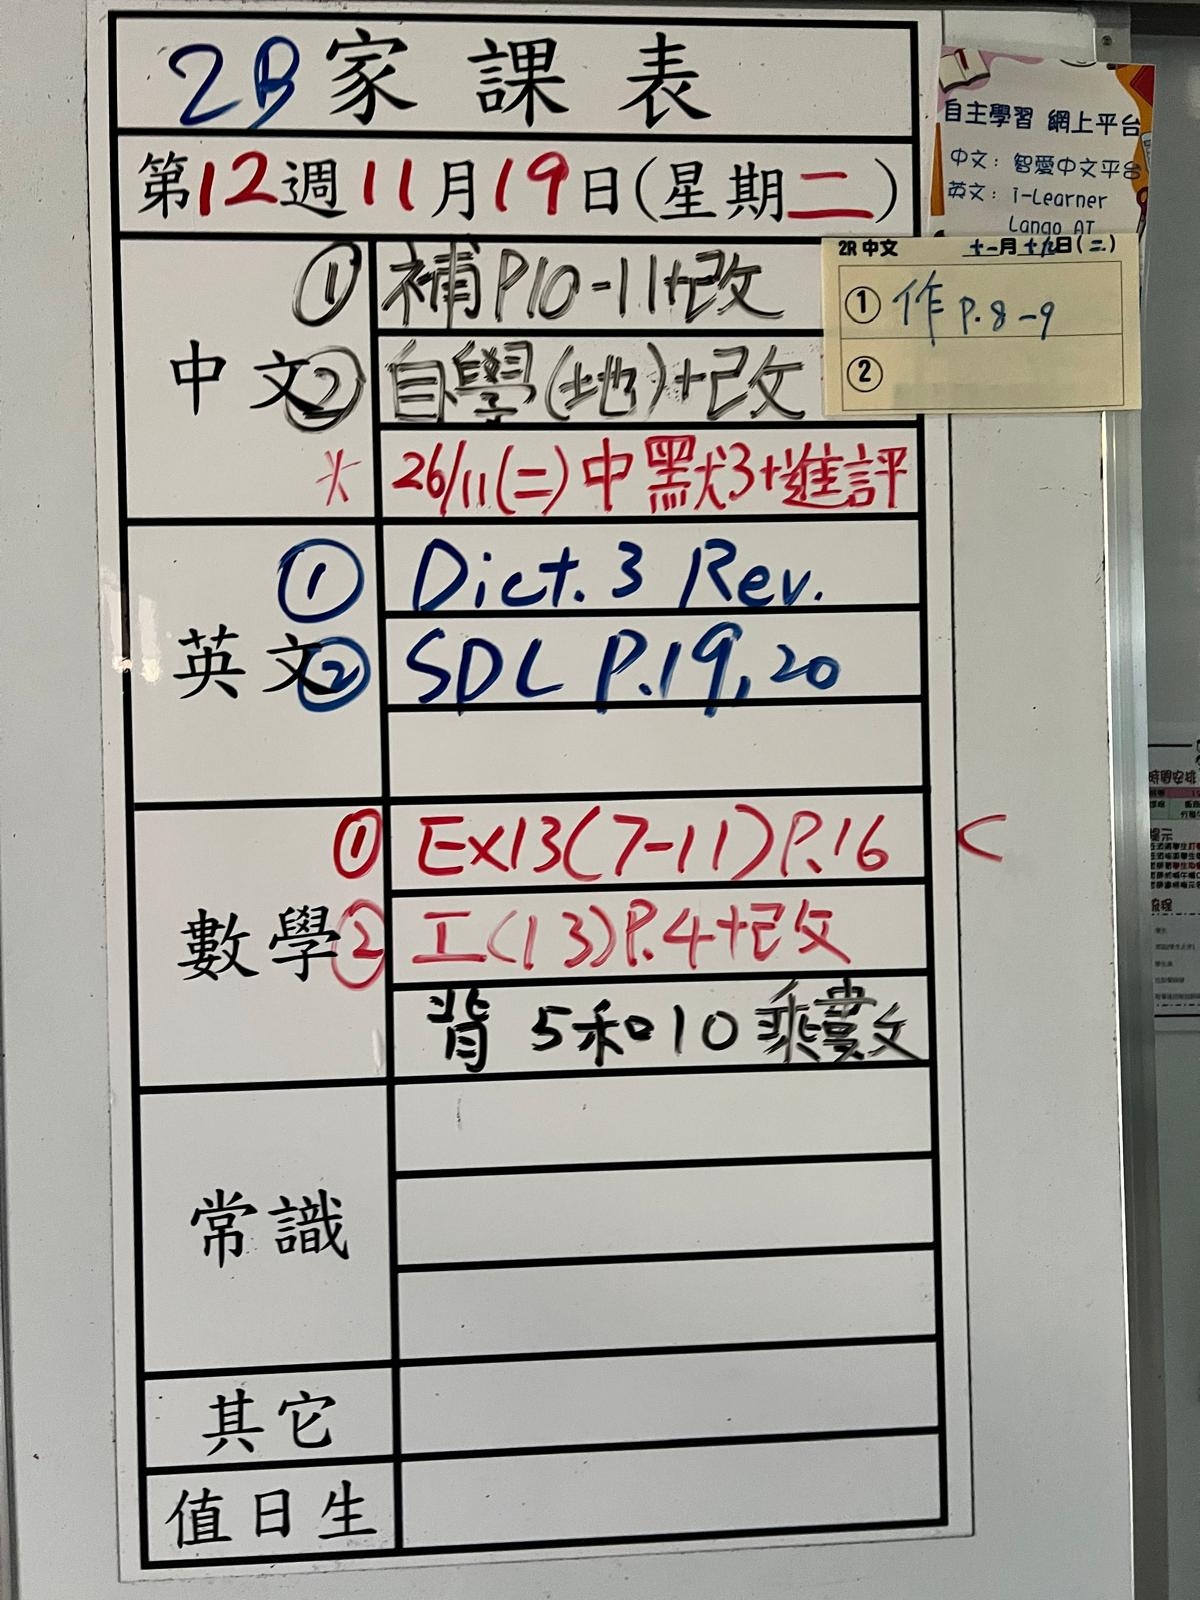 2B家課表
第12週11月19日(星期二)
中文
① 補P10-11+改
② 自學(地)+改
* 26/11(二)中默3+進評
英文
① Dict. 3 Rev.
② SDL P.19,20
數學
① Ex13(7-11)P.16
② 工(13)P.4+改
背 5和10乘數文
常識
其它
值日生
自主學習 網上平台
中文：智愛中文平台
英文：i-Learner
Lango AI
2R 中文 十一月十九日(二)
① 作 P.8-9
②
提示
流程